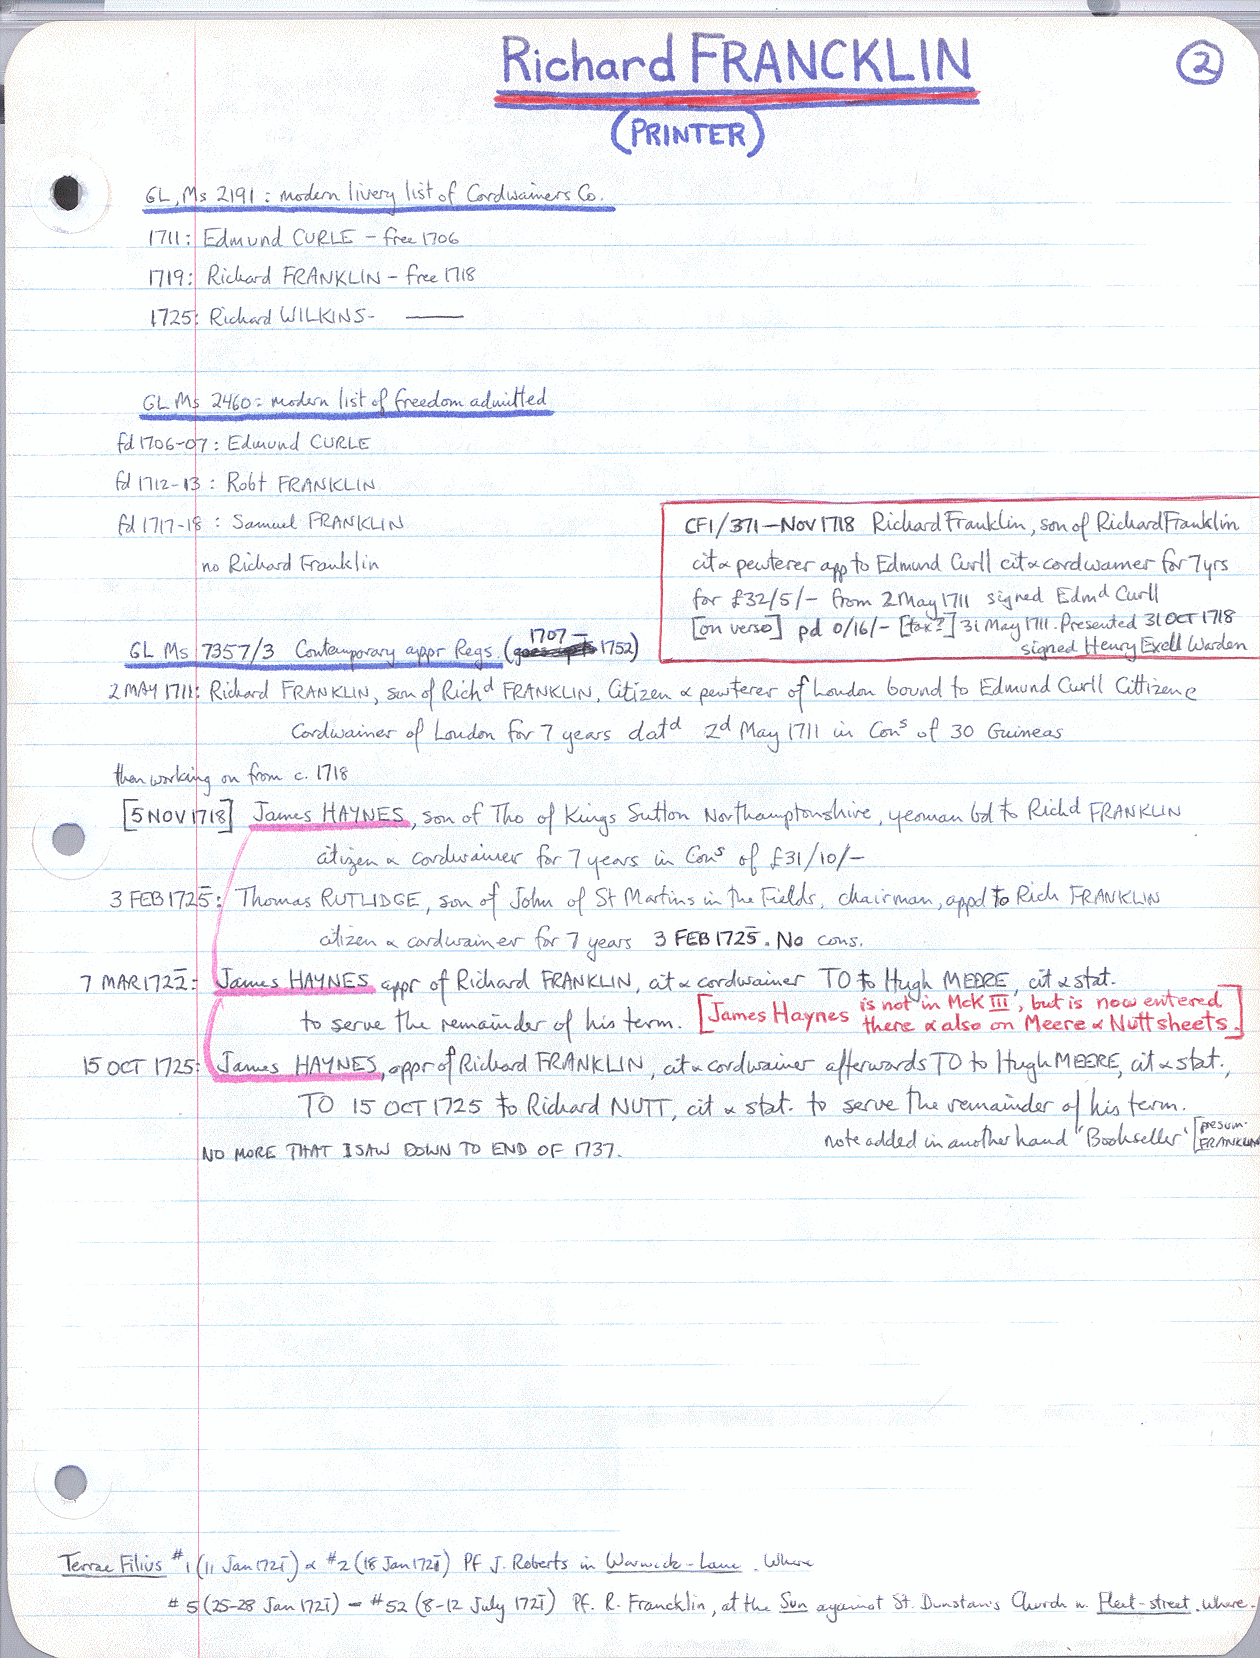 Richard FRANCKLIN
2
(PRINTER)
GL, Ms 2191: modern livery list of Cordwainers Co.
1711: Edmund CURLE - free 1706
1719: Richard FRANKLIN - free 1718
1725: Richard WILKINS- ——
GL Ms 2460: modern list of freedom admitted
fd 1706-07: Edmund CURLE
fd 1712-13: Robt FRANKLIN
fd 1717-18: Samuel FRANKLIN
no Richard Franklin
CF1/371-Nov 1718 Richard Franklin, son of Richard Franklin
cit & pewterer app to Edmund Curll cit & cordwainer for 7 yrs
for £32/5/- from 2 May 1711 signed Edmd Curll
[on verso] pd 0/16/- [tax?] 31 May 1711. Presented 31 OCT 1718
signed Henry Exell Warden
GL Ms 7357/3 Contemporary appr Regs. (1707- 1752)
2 MAY 1711: Richard FRANKLIN, son of Richd FRANKLIN, Citizen & pewterer of London bound to Edmund Curll Cittizen e
Cordwainer of London for 7 years datd 2d May 1711 in Cons of 30 Guineas
then working on from c. 1718
[5 NOV 1718] James HAYNES, son of Tho of Kings Sutton Northamptonshire, yeoman bd to Richd FRANKLIN
citizen & cordwainer for 7 years in Cons of £31/10/-
3 FEB 1725: Thomas RUTLIDGE, son of John of St Martins in the Fields, chairman, appd to Rich FRANKLIN
citizen & cordwainer for 7 years 3 FEB 1725. No cons.
7 MAR 1722: James HAYNES appr of Richard FRANKLIN, cit & cordwainer TO to Hugh MEERE, cit & stat.
to serve the remainder of his term. [James Haynes is not in McK III, but is now entered
there & also on Meere & Nutt sheets.]
15 OCT 1725: James HAYNES, appr of Richard FRANKLIN, cit & cordwainer afterwards TO to Hugh MEERE, cit & stat.,
TO 15 OCT 1725 to Richard NUTT, cit & stat. to serve the remainder of his term.
note added in another hand 'Bookseller' [presum. FRANKLIN
NO MORE THAT I SAW DOWN TO END OF 1737.
Terrae Filius #1 (11 Jan 1721) & #2 (18 Jan 1721) Pf J. Roberts in Warwick-Lane. Where
#5 (25-28 Jan 1721) - #52 (8-12 July 1721) Pf. R. Francklin, at the Sun against St. Dunstan's Church in Fleet-street. Where.